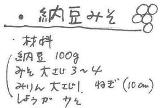 ・納豆みそ
・材料
納豆 100g
みそ 大さじ 3～4
みりん 大さじ1 ねぎ(10cm)
しょうが 少々